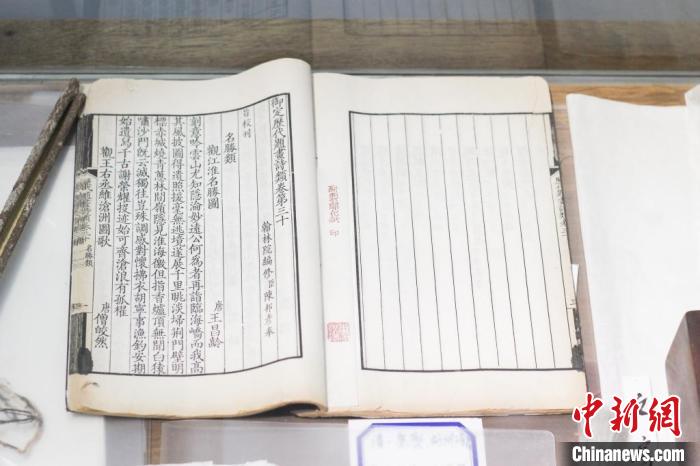 御定歷代題畫詩類卷第三十
翰林院編修臣陳邦彥奉
旨校刊
名勝類
觀江淮名勝圖 唐王昌齡
刻意吟雲山尤知隱淪妙遠公何為者再詣臨海嶠而我高
其風披圖得遺照援毫無逃境遂展千里眺淡埽荊門壁明
標赤城燒青蔥林間嶺隱見淮海徼但指香爐頂無聞白猿
嘯沙門既云滅獨往豈殊調感對懷拂衣胡寧事漁釣安期
始遺舄千古謝榮耀投迹始可齊滄浪有孤櫂
觀王右丞維滄洲圖歌 唐僧皎然
名勝類
印
中新网
Chinanews.com